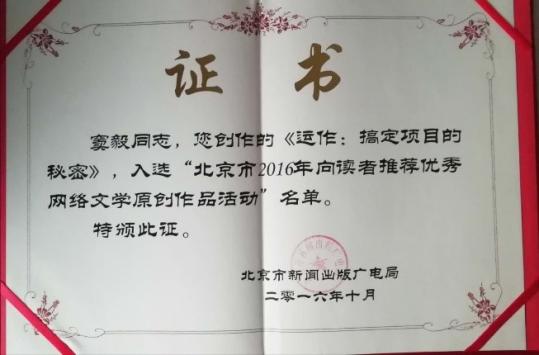 证 书
窦毅同志，您创作的《运作：搞定项目的
秘密》，入选“北京市2016年向读者推荐优秀
网络文学原创作品活动”名单。
特颁此证。
北京市新闻出版广电局
二零一六年十月